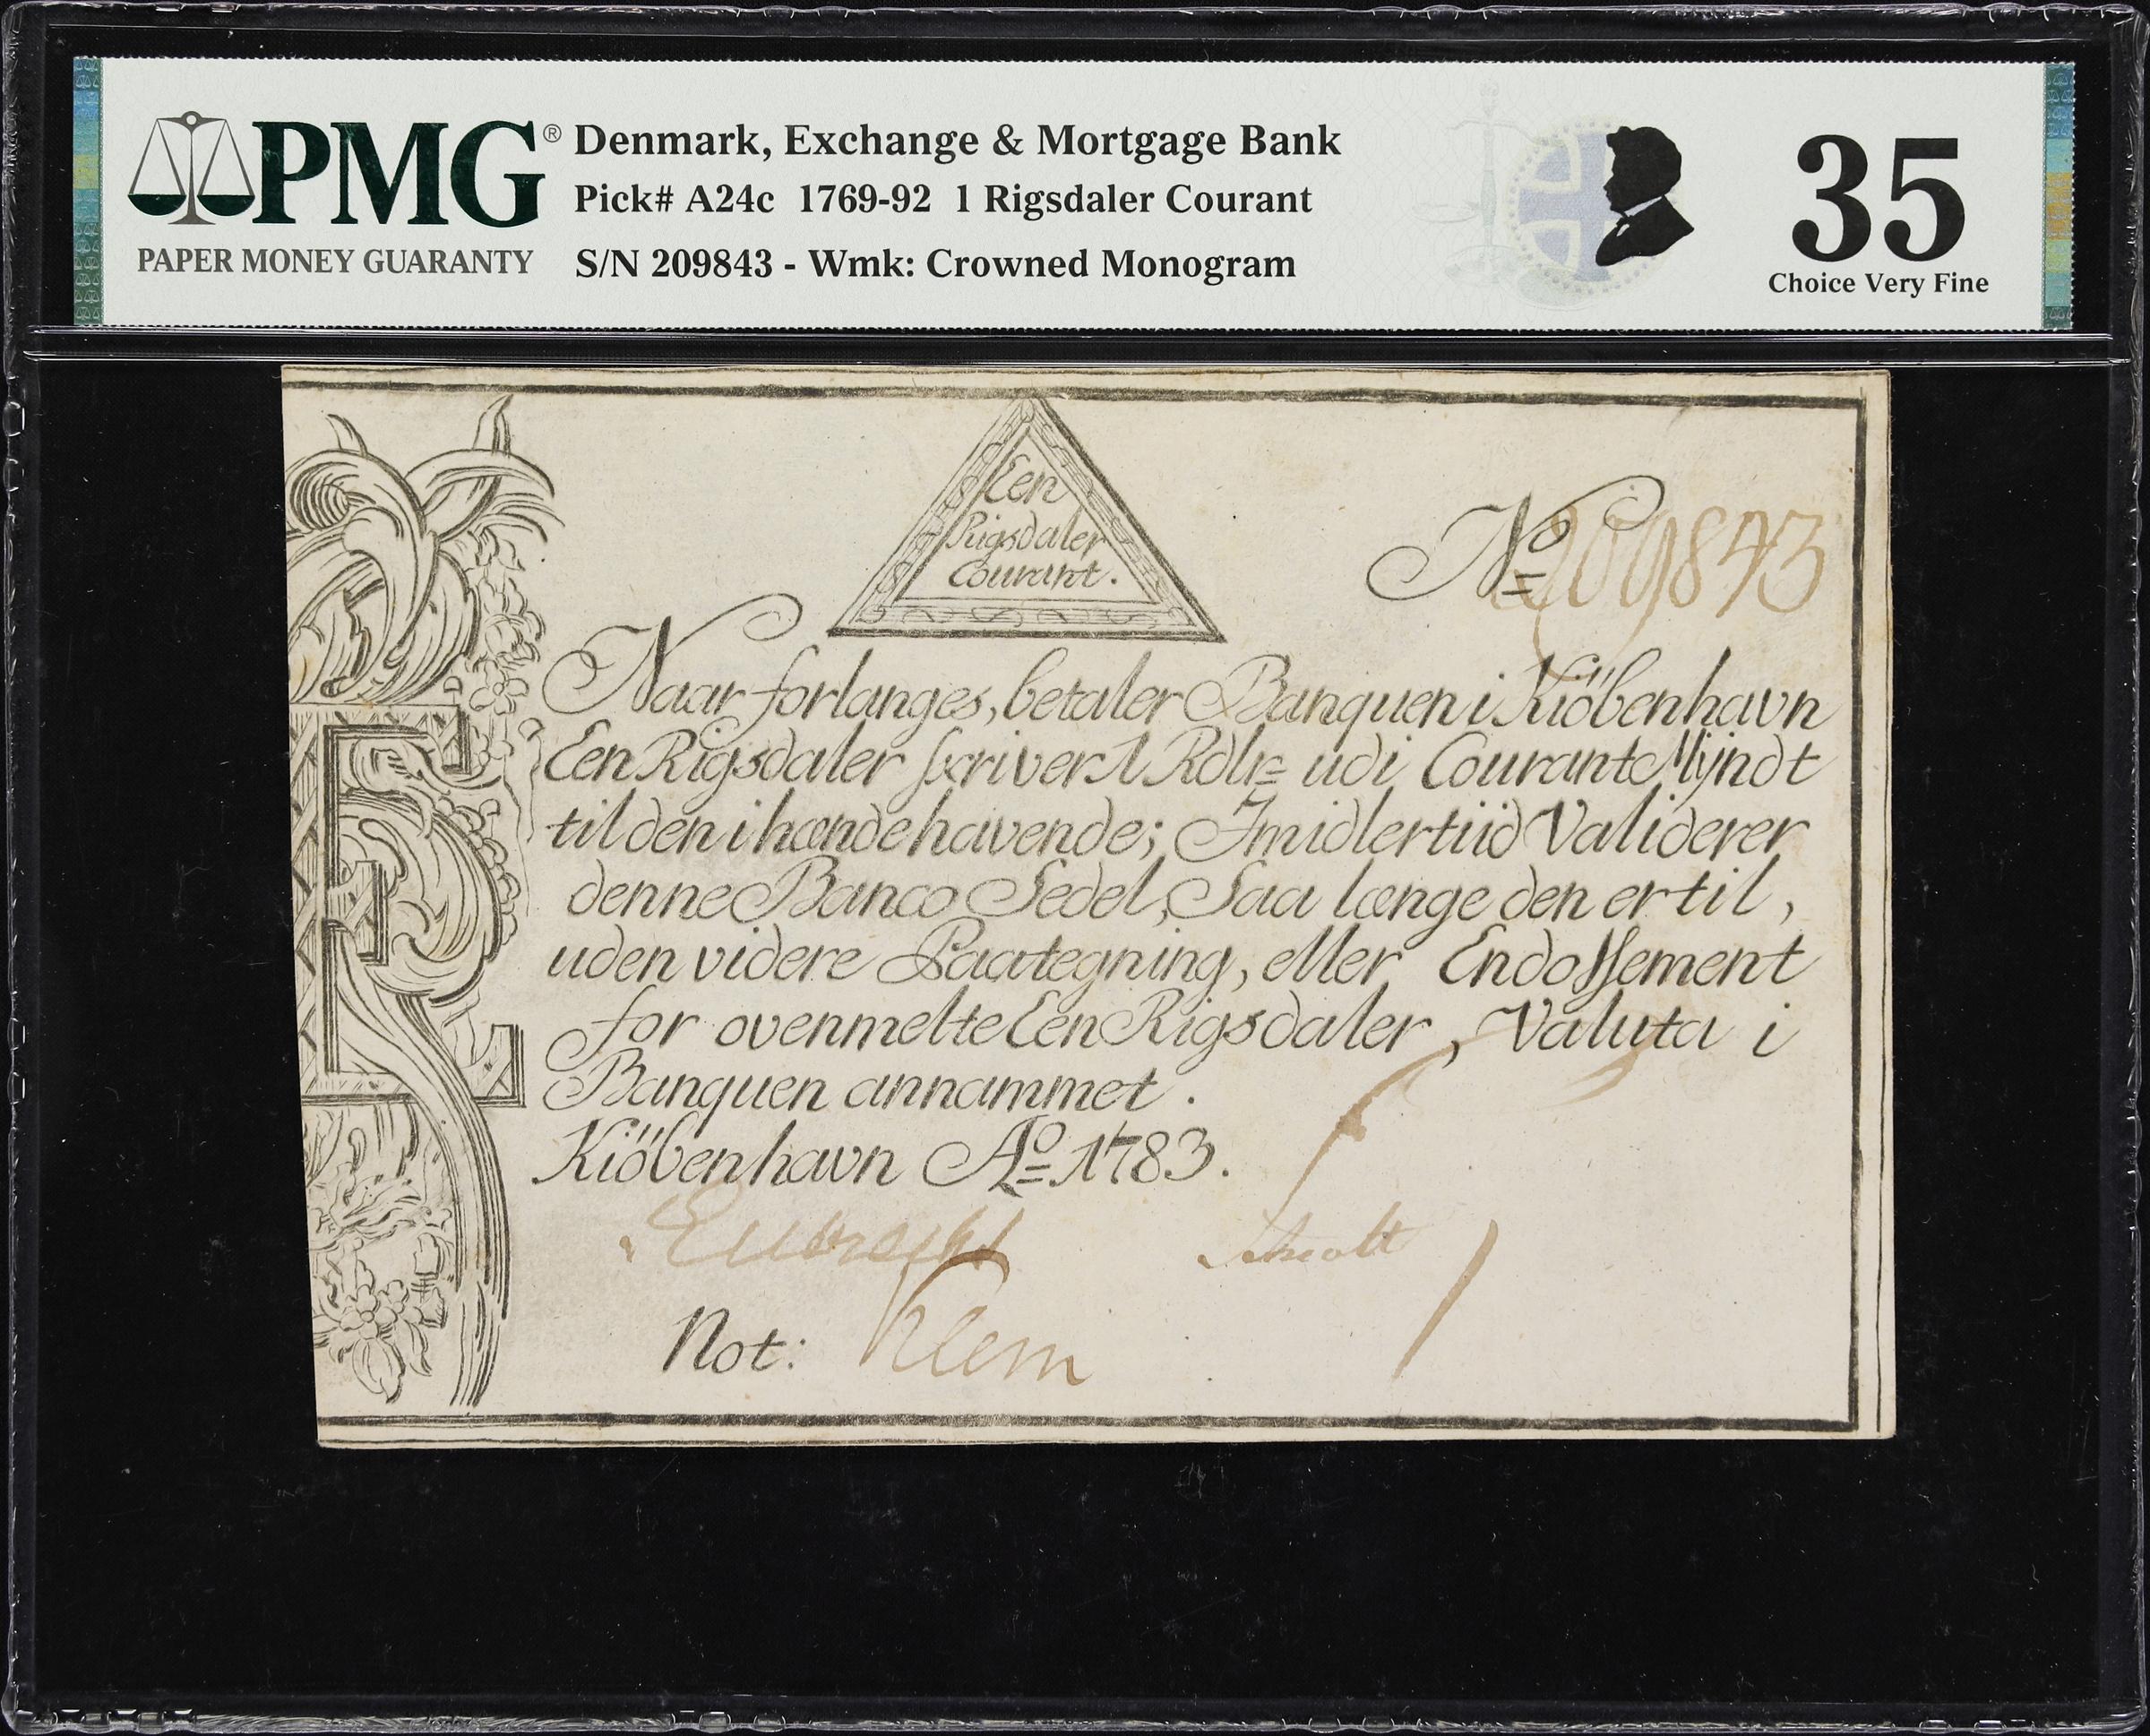 PMG®
PAPER MONEY GUARANTY
Denmark, Exchange & Mortgage Bank
Pick# A24c 1769-92 1 Rigsdaler Courant
S/N 209843 - Wmk: Crowned Monogram
35
Choice Very Fine
Een
Rigsdaler
Courant.
No 209843
Naar forlanges, betaler Banquen i Kiöbenhavn
Een Rigsdaler skriver 1 Rdlr udi Courant Mÿndt
til den i hændehavende; Imidlertiid Validerer
denne Banco Sedel, Saa længe den er til,
uden videre Paategning, eller Endossement
for ovenmelte Een Rigsdaler, Valuta i
Banquen annammet.
Kiöbenhavn Ao 1783.
Not: Klem